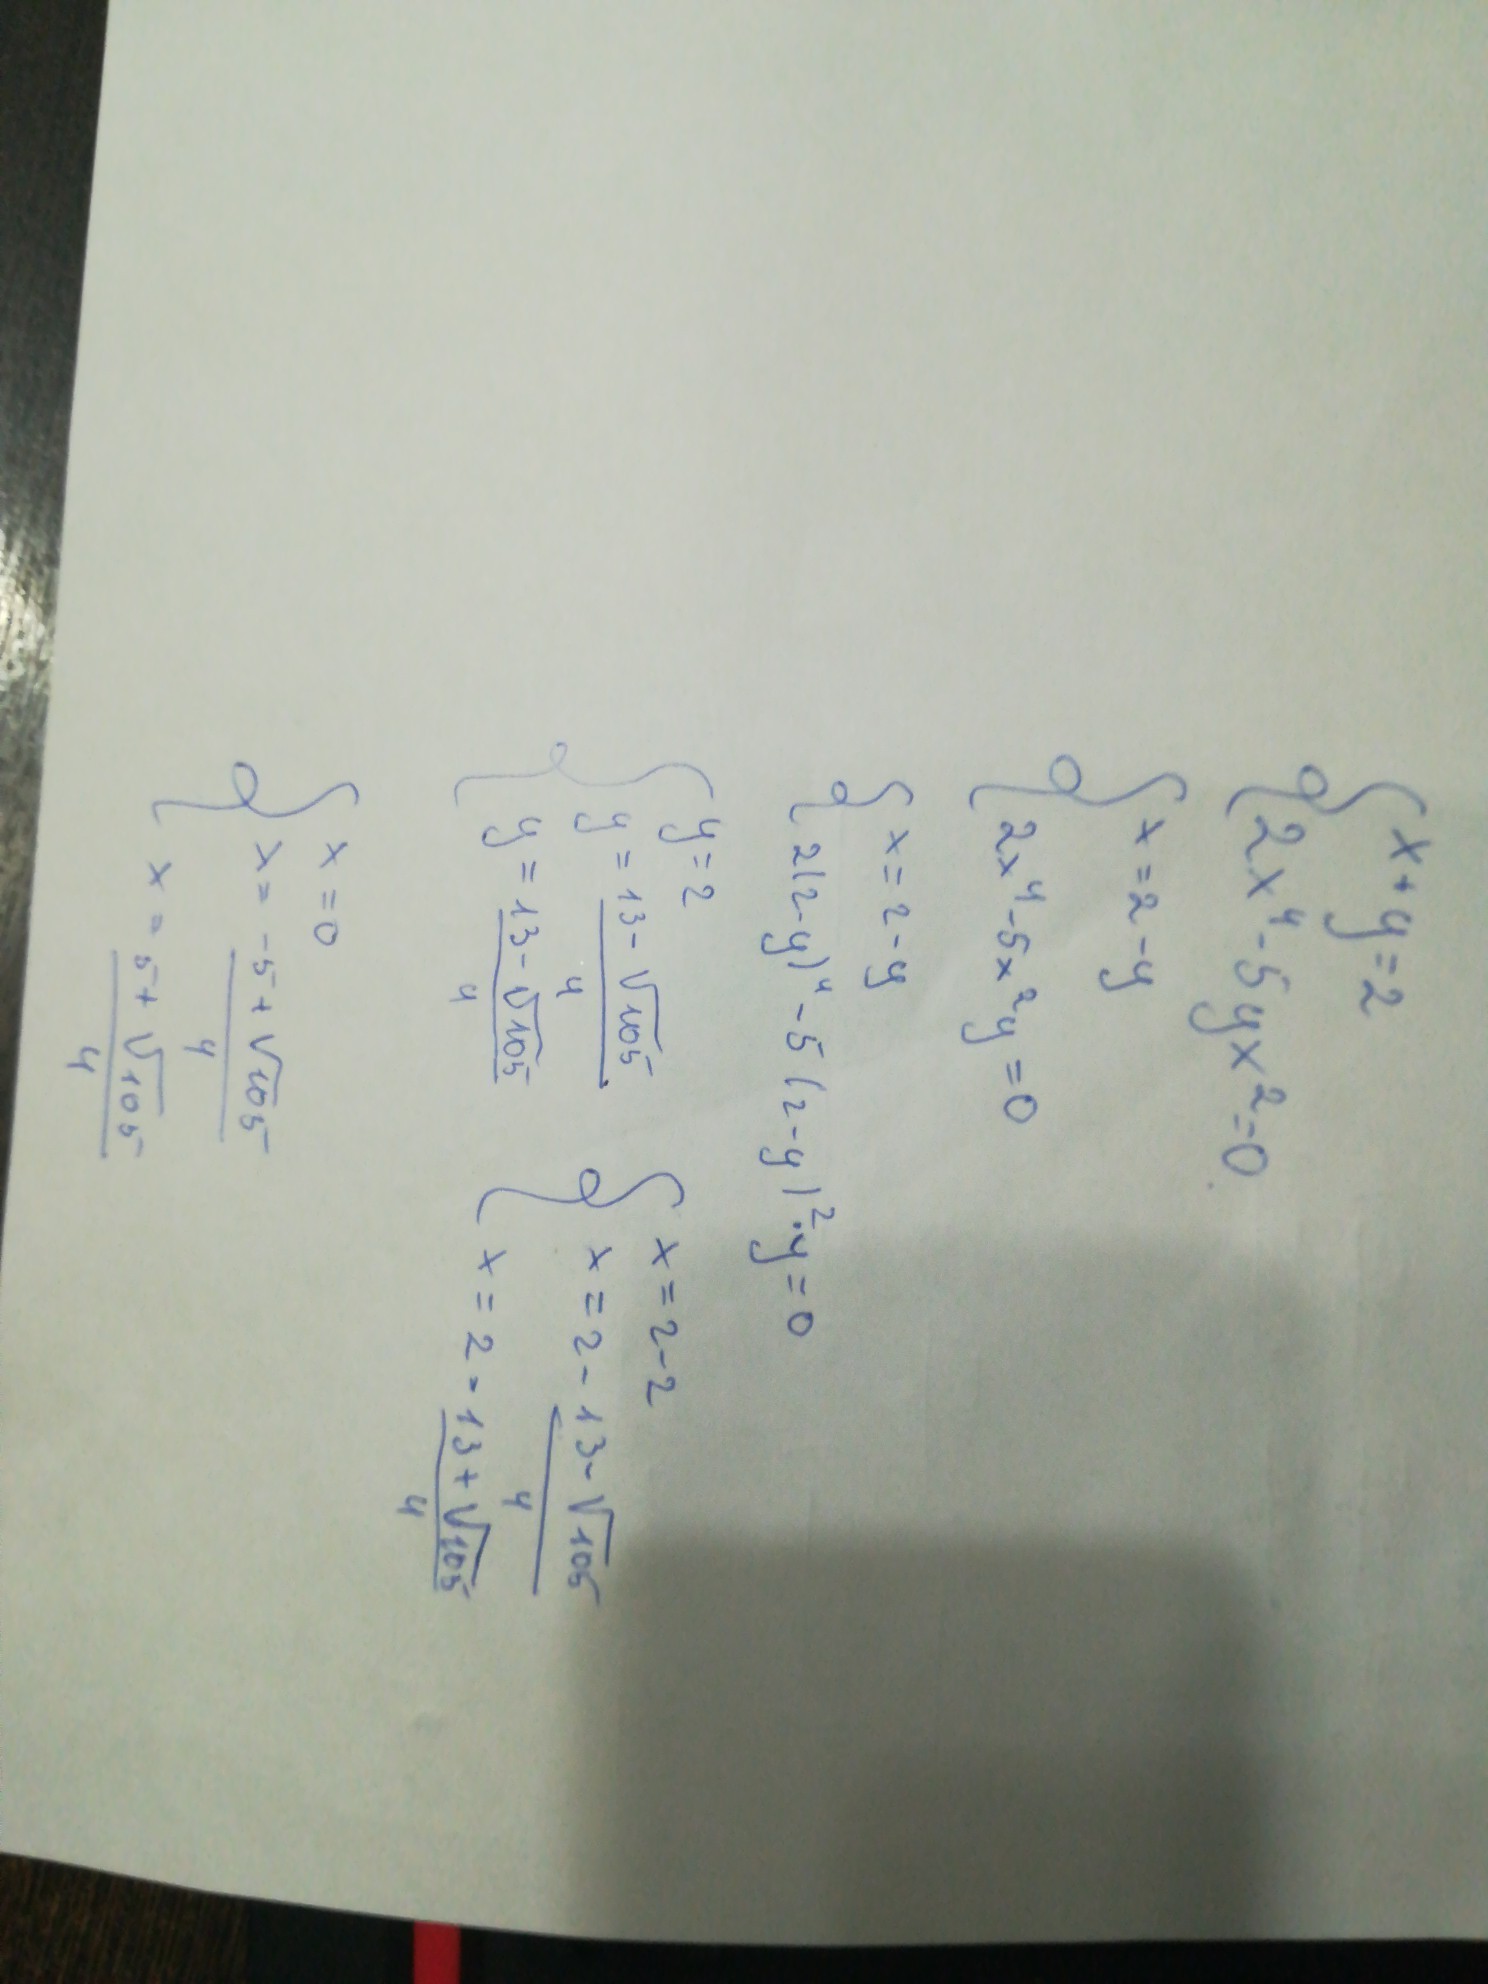 { x + y = 2
{ 2x⁴ - 5yx² = 0
{ x = 2 - y
{ 2x⁴ - 5x²y = 0
{ x = 2 - y
{ 2(2-y)⁴ - 5(2-y)²·y = 0
{ y = 2
y = (13 - √105)/4
y = (13 - √105)/4
{ x = 2 - 2
x = 2 - (13 - √105)/4
x = 2 - (13 + √105)/4
{ x = 0
x = (-5 + √105)/4
x = (5 + √105)/4